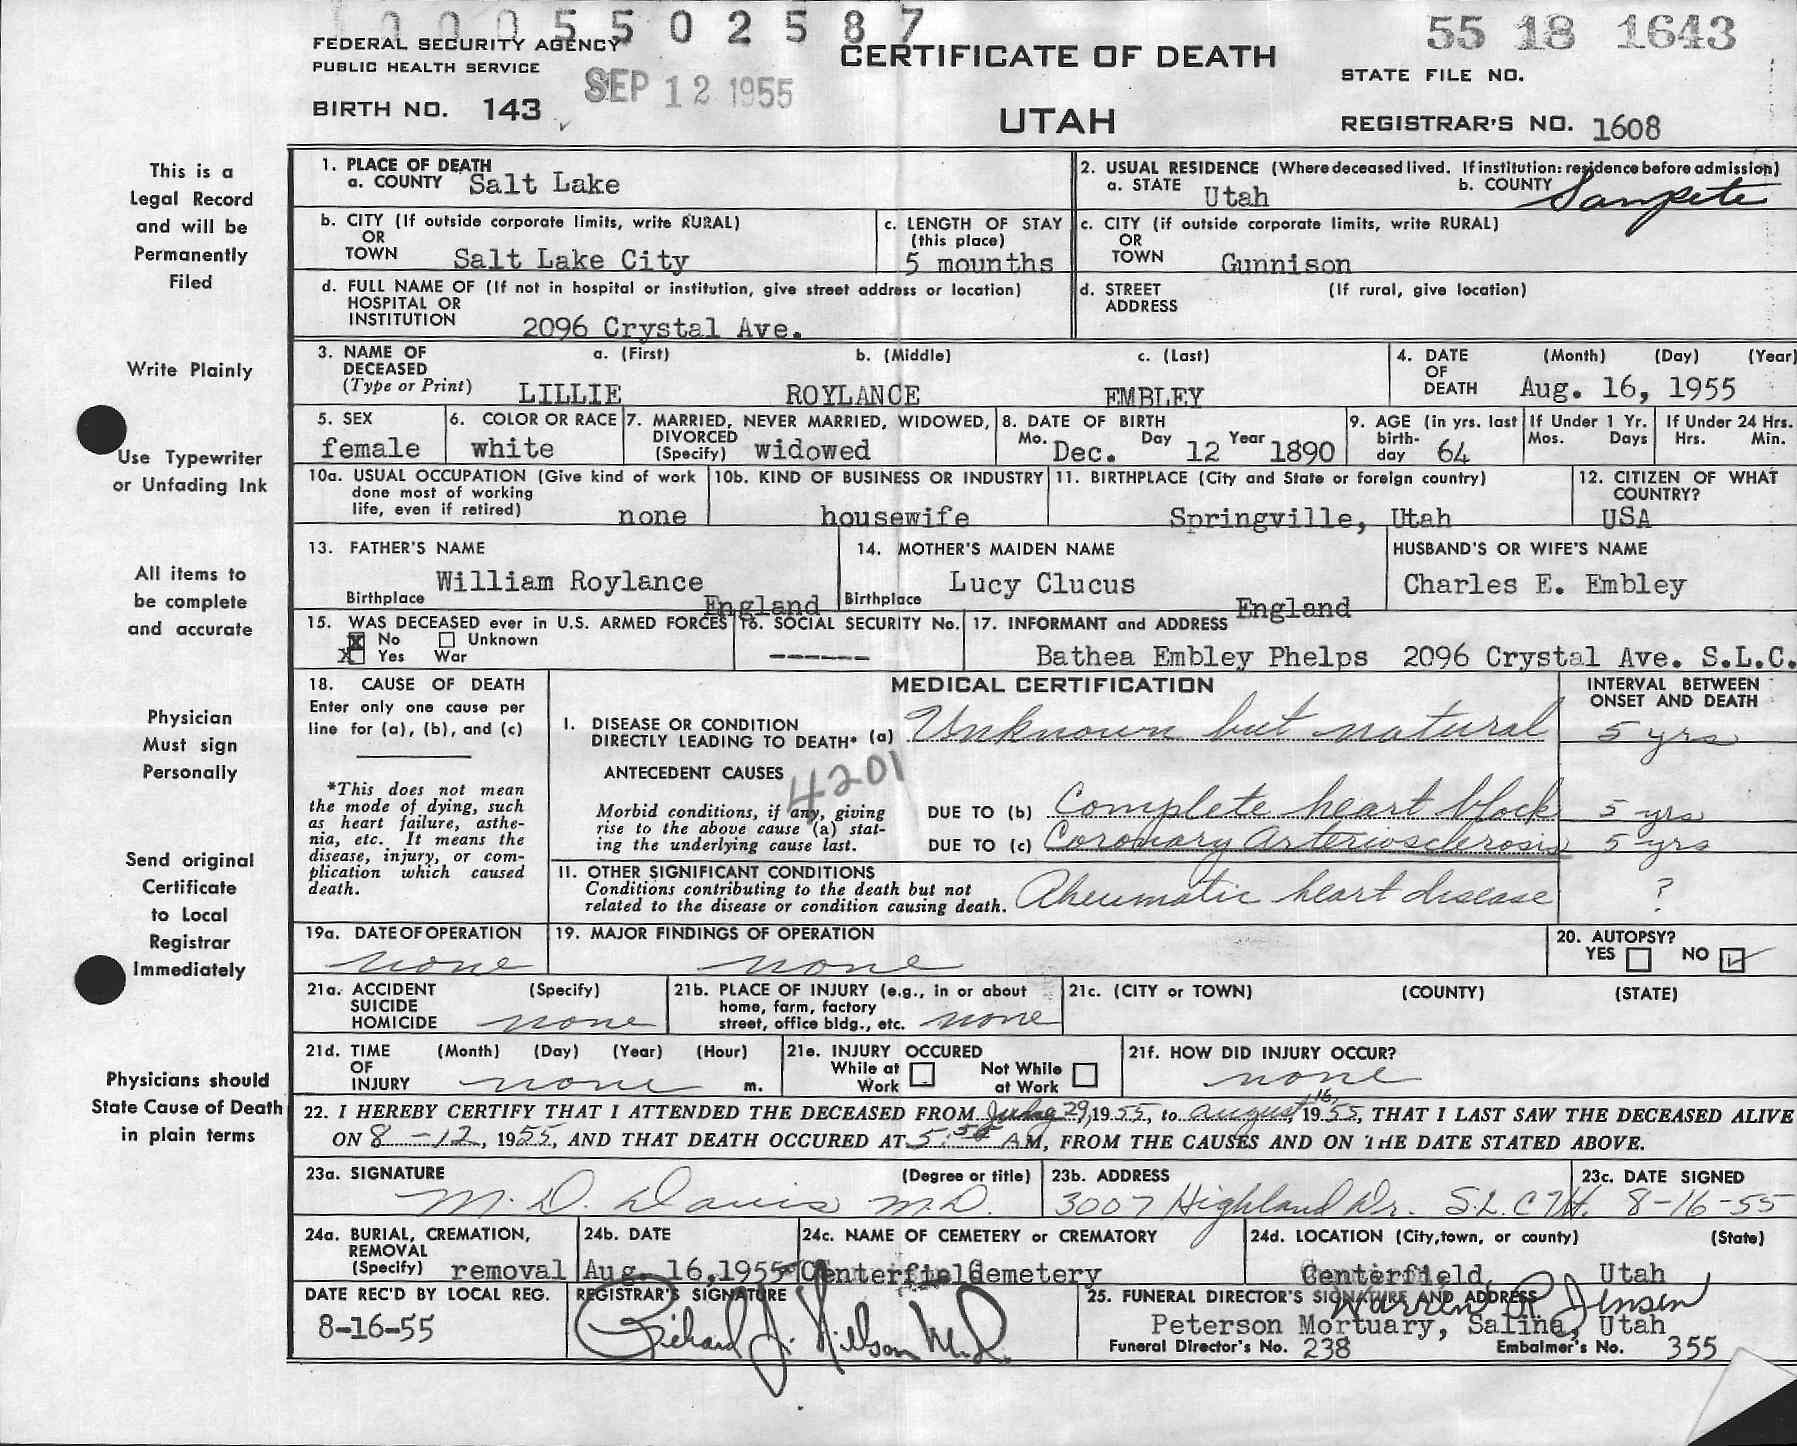 1 0 0 0 5 5 0 2 5 8 7
55 18 1643
FEDERAL SECURITY AGENCY
PUBLIC HEALTH SERVICE
SEP 12 1955
CERTIFICATE OF DEATH
STATE FILE NO.
BIRTH NO. 143
UTAH
REGISTRAR'S NO. 1608
This is a
Legal Record
and will be
Permanently
Filed
Write Plainly
Use Typewriter
or Unfading Ink
All items to
be complete
and accurate
Physician
Must sign
Personally
Send original
Certificate
to Local
Registrar
Immediately
Physicians should
State Cause of Death
in plain terms
1. PLACE OF DEATH
a. COUNTY Salt Lake
2. USUAL RESIDENCE (Where deceased lived. If institution: residence before admission)
a. STATE Utah b. COUNTY Sanpete
b. CITY (If outside corporate limits, write RURAL)
OR
TOWN Salt Lake City
c. LENGTH OF STAY
(this place)
5 mounths
c. CITY (if outside corporate limits, write RURAL)
OR
TOWN Gunnison
d. FULL NAME OF (If not in hospital or institution, give street address or location)
HOSPITAL OR
INSTITUTION 2096 Crystal Ave.
d. STREET (If rural, give location)
ADDRESS
3. NAME OF a. (First) b. (Middle) c. (Last)
DECEASED
(Type or Print) LILLIE ROYLANCE EMBLEY
4. DATE (Month) (Day) (Year)
OF
DEATH Aug. 16, 1955
5. SEX
female
6. COLOR OR RACE
white
7. MARRIED, NEVER MARRIED, WIDOWED,
DIVORCED
(Specify) widowed
8. DATE OF BIRTH
Mo. Dec. Day 12 Year 1890
9. AGE (in yrs. last
birth-
day 64
If Under 1 Yr.
Mos. Days
If Under 24 Hrs.
Hrs. Min.
10a. USUAL OCCUPATION (Give kind of work
done most of working
life, even if retired) none
10b. KIND OF BUSINESS OR INDUSTRY
housewife
11. BIRTHPLACE (City and State or foreign country)
Springville, Utah
12. CITIZEN OF WHAT
COUNTRY?
USA
13. FATHER'S NAME
William Roylance
Birthplace England
14. MOTHER'S MAIDEN NAME
Lucy Clucus
Birthplace England
HUSBAND'S OR WIFE'S NAME
Charles E. Embley
15. WAS DECEASED ever in U.S. ARMED FORCES
X No Unknown
X Yes War
16. SOCIAL SECURITY No.
------
17. INFORMANT and ADDRESS
Bathea Embley Phelps 2096 Crystal Ave. S.L.C.
18. CAUSE OF DEATH
Enter only one cause per
line for (a), (b), and (c)
*This does not mean
the mode of dying, such
as heart failure, asthe-
nia, etc. It means the
disease, injury, or com-
plication which caused
death.
MEDICAL CERTIFICATION
INTERVAL BETWEEN
ONSET AND DEATH
I. DISEASE OR CONDITION
DIRECTLY LEADING TO DEATH* (a) Unknown but natural 5 yrs
ANTECEDENT CAUSES 4201
Morbid conditions, if any, giving
rise to the above cause (a) stat-
ing the underlying cause last.
DUE TO (b) Complete heart block 5 yrs
DUE TO (c) Coronary Arteriosclerosis 5 yrs
II. OTHER SIGNIFICANT CONDITIONS
Conditions contributing to the death but not
related to the disease or condition causing death. Rheumatic heart disease ?
19a. DATE OF OPERATION
none
19. MAJOR FINDINGS OF OPERATION
none
20. AUTOPSY?
YES NO
21a. ACCIDENT (Specify)
SUICIDE
HOMICIDE none
21b. PLACE OF INJURY (e.g., in or about
home, farm, factory
street, office bldg., etc. none
21c. (CITY or TOWN) (COUNTY) (STATE)
21d. TIME (Month) (Day) (Year) (Hour)
OF
INJURY none m.
21e. INJURY OCCURED
While at Work Not While at Work
21f. HOW DID INJURY OCCUR?
none
22. I HEREBY CERTIFY THAT I ATTENDED THE DECEASED FROM 29, 1955, to August 16, 1955, THAT I LAST SAW THE DECEASED ALIVE
ON 8-12, 1955, AND THAT DEATH OCCURED AT AM, FROM THE CAUSES AND ON THE DATE STATED ABOVE.
23a. SIGNATURE (Degree or title)
M. D. Davis M.D.
23b. ADDRESS
3007 Highland Dr. S.L.C Ut.
23c. DATE SIGNED
8-16-55
24a. BURIAL, CREMATION,
REMOVAL
(Specify) removal
24b. DATE
Aug. 16, 1955
24c. NAME OF CEMETERY or CREMATORY
Centerfield Cemetery
24d. LOCATION (City, town, or county) (State)
Centerfield, Utah
DATE REC'D BY LOCAL REG.
8-16-55
REGISTRAR'S SIGNATURE
Richard J. Nilson M.D.
25. FUNERAL DIRECTOR'S SIGNATURE AND ADDRESS
Warren R Jensen
Peterson Mortuary, Salina, Utah
Funeral Director's No. 238 Embalmer's No. 355